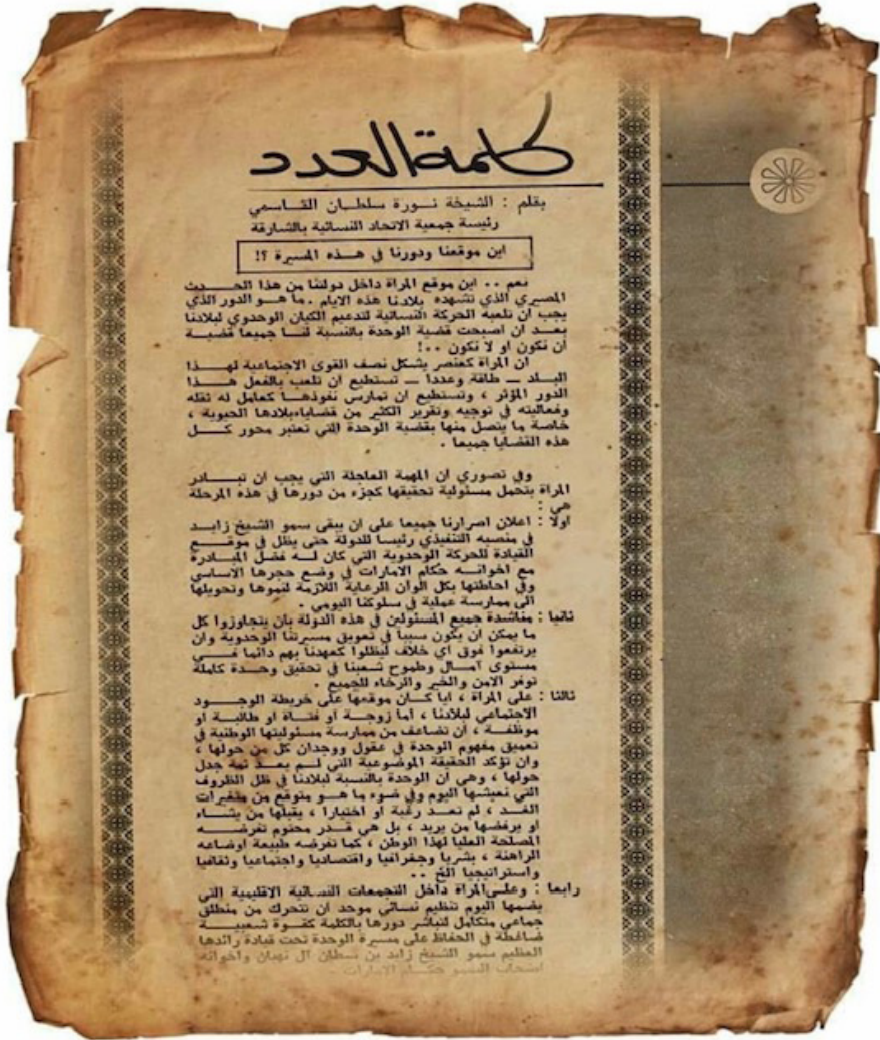 كلمة العدد
بقلم : الشيخة نورة سلطان القاسمي
رئيسة جمعية الاتحاد النسائية بالشارقة
اين موقعنا ودورنا في هذه المسيرة ؟!
نعم .. اين موقع المرأة داخل دولتنا من هذا الحدث
المصيري الذي تشهده بلادنا هذه الايام . ما هو الدور الذي
يجب ان تلعبه الحركة النسائية لتدعيم الكيان الوحدوي لبلادنا
بعد ان اصبحت قضية الوحدة بالنسبة لنا جميعا قضية
أن نكون او لا نكون ..!
ان المرأة كعنصر يشكل نصف القوى الاجتماعية لهذا
البلد — طاقة وعددا — تستطيع ان تلعب بالفعل هذا
الدور المؤثر ، وتستطيع ان تمارس نفوذها كعامل له ثقله
وفعاليته في توجيه وتقرير الكثير من قضايا بلادها الحيوية ،
خاصة ما يتصل منها بقضية الوحدة التي تعتبر محور كل
هذه القضايا جميعا .
وفي تصوري ان المهمة العاجلة التي يجب ان تبادر
المرأة بتحمل مسئولية تحقيقها كجزء من دورها في هذه المرحلة
هي :
اولا : اعلان اصرارنا جميعا على ان يبقى سمو الشيخ زايد
في منصبه التنفيذي رئيسا للدولة حتى يظل في موقع
القيادة للحركة الوحدوية التي كان له فضل المبادرة
مع اخوانه حكام الامارات في وضع حجرها الاساسي
وفي احاطتها بكل الوان الرعاية اللازمة لنموها وتحويلها
الى ممارسة عملية في سلوكنا اليومي .
ثانيا : مناشدة جميع المسئولين في هذه الدولة بان يتجاوزوا كل
ما يمكن ان يكون سببا في تعويق مسيرتنا الوحدوية وان
يرتفعوا فوق اي خلاف ليظلوا كعهدنا بهم دائما في
مستوى آمال وطموح شعبنا في تحقيق وحدة كاملة
توفر الامن والخير والرخاء للجميع .
ثالثا : على المرأة ، ايا كان موقعها على خريطة الوجود
الاجتماعي لبلادنا ، أما زوجة او فتاة او طالبة او
موظفة ، ان تضاعف من ممارسة مسئوليتها الوطنية في
تعميق مفهوم الوحدة في عقول ووجدان كل من حولها ،
وان تؤكد الحقيقة الموضوعية التي لم يعد ثمة جدل
حولها ، وهي ان الوحدة بالنسبة لبلادنا في ظل الظروف
التي نعيشها اليوم وفي ضوء ما هو متوقع من متغيرات
الغد ، لم تعد رغبة او اختيارا ، يقبلها من يشاء
او يرفضها من يريد ، بل هي قدر محتوم تفرضه
المصلحة العليا لهذا الوطن ، كما تفرضه طبيعة اوضاعه
الراهنة ، بشريا وجغرافيا واقتصاديا واجتماعيا وثقافيا
واستراتيجيا الخ ..
رابعا : وعلى المرأة داخل التجمعات النسائية الاقليمية التي
يضمها اليوم تنظيم نسائي موحد ان تتحرك من منطلق
جماعي متكامل لتباشر دورها بالكلمة كقوة شعبية
ضاغطة في الحفاظ على مسيرة الوحدة تحت قيادة رائدها
العظيم سمو الشيخ زايد بن سلطان آل نهيان واخوانه
اصحاب السمو حكام الامارات